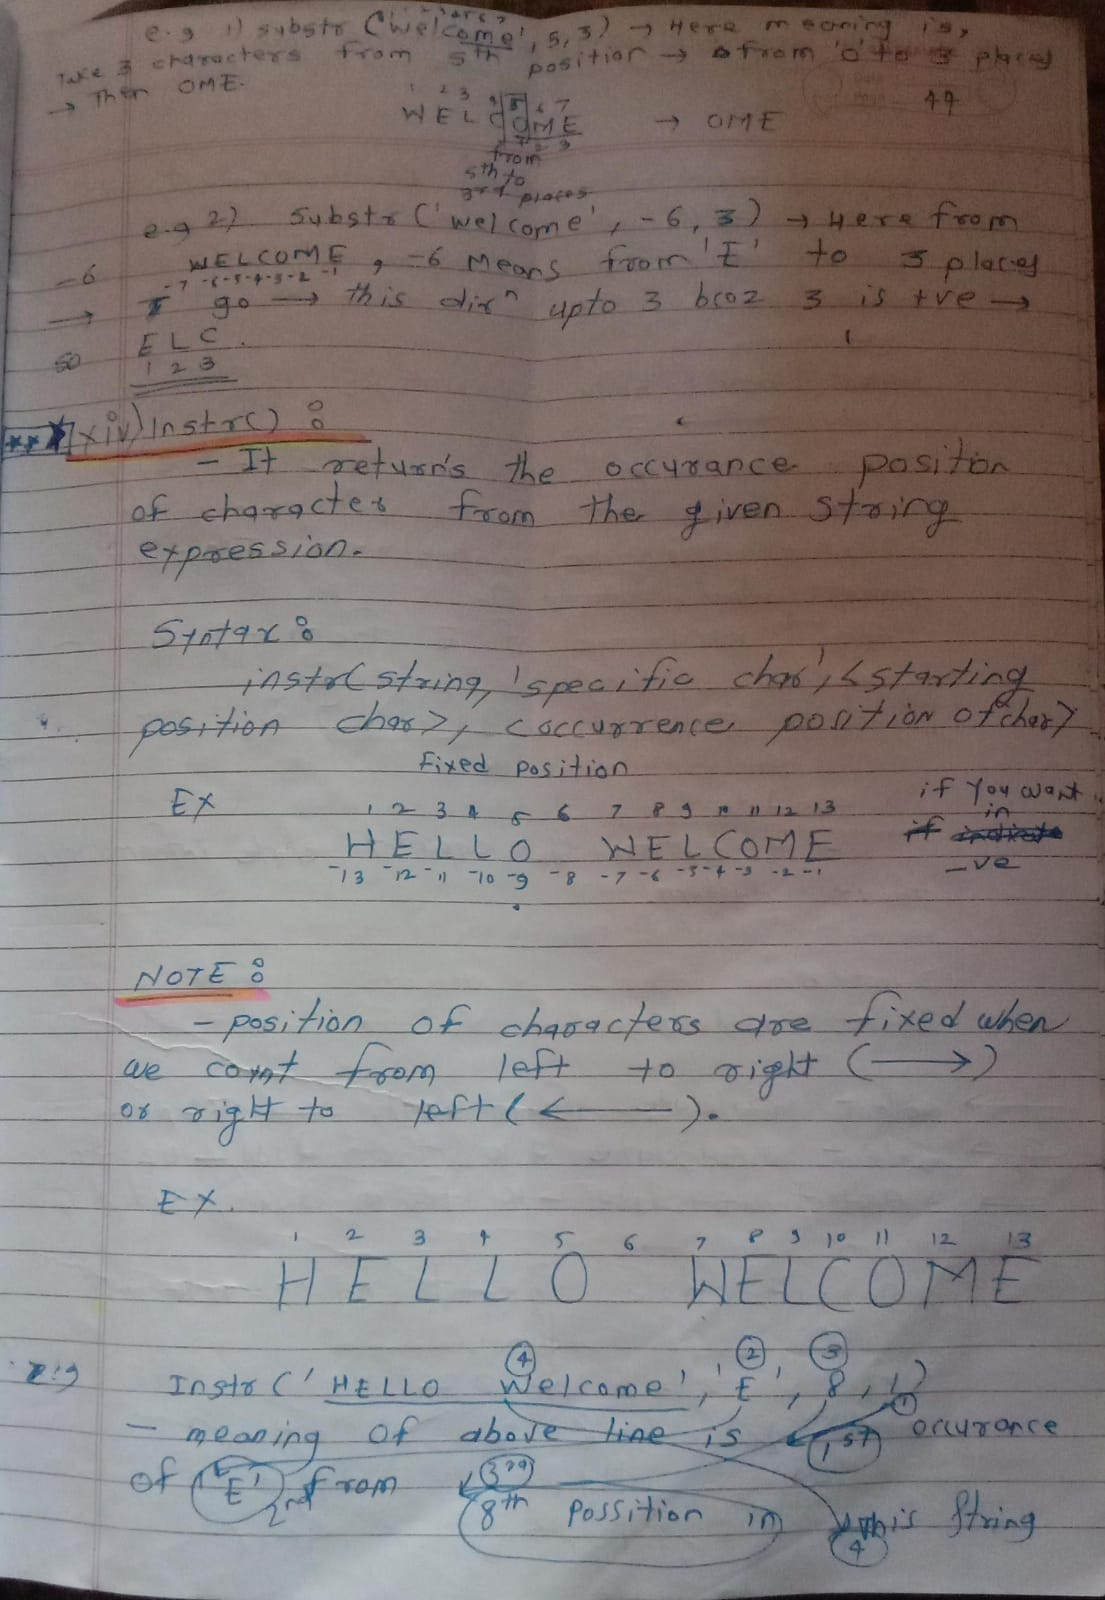 1 2 3 4 5 6 7
e.g 1) substr ('Welcome', 5, 3) → Here meaning is,
Take 3 characters from 5th position → from 'o' to 3 places
→ Then OME.
47
1 2 3 4 5 6 7
WELCOME → OME
1 2 3
from
5th to
3rd places
e.g 2) Substr ('welcome', -6, 3) → Here from
-6 WELCOME, -6 Means from 'E' to 3 places
-7 -6 -5 -4 -3 -2 -1
→ go → this dirn upto 3 bcoz 3 is +ve →
so ELC.
1 2 3
xiv) Instr() :
- It return's the occurance position
of character from the given string
expression.
Syntax :
instr( string, 'specific char', <starting
position char>, <occurrence position of char>
Fixed position
EX 1 2 3 4 5 6 7 8 9 10 11 12 13
HELLO WELCOME
-13 -12 -11 -10 -9 -8 -7 -6 -5 -4 -3 -2 -1
if you want
in
-ve
NOTE :
- position of characters are fixed when
we count from left to right (→)
or right to left (←).
EX.
1 2 3 4 5 6 7 8 9 10 11 12 13
HELLO WELCOME
4 2 3
e.g Instr (' HELLO Welcome', 'E', 8, 1)
1
- meaning of above line is 1st occurance
of 'E' from 3rd
2nd 8th possition in this string
4